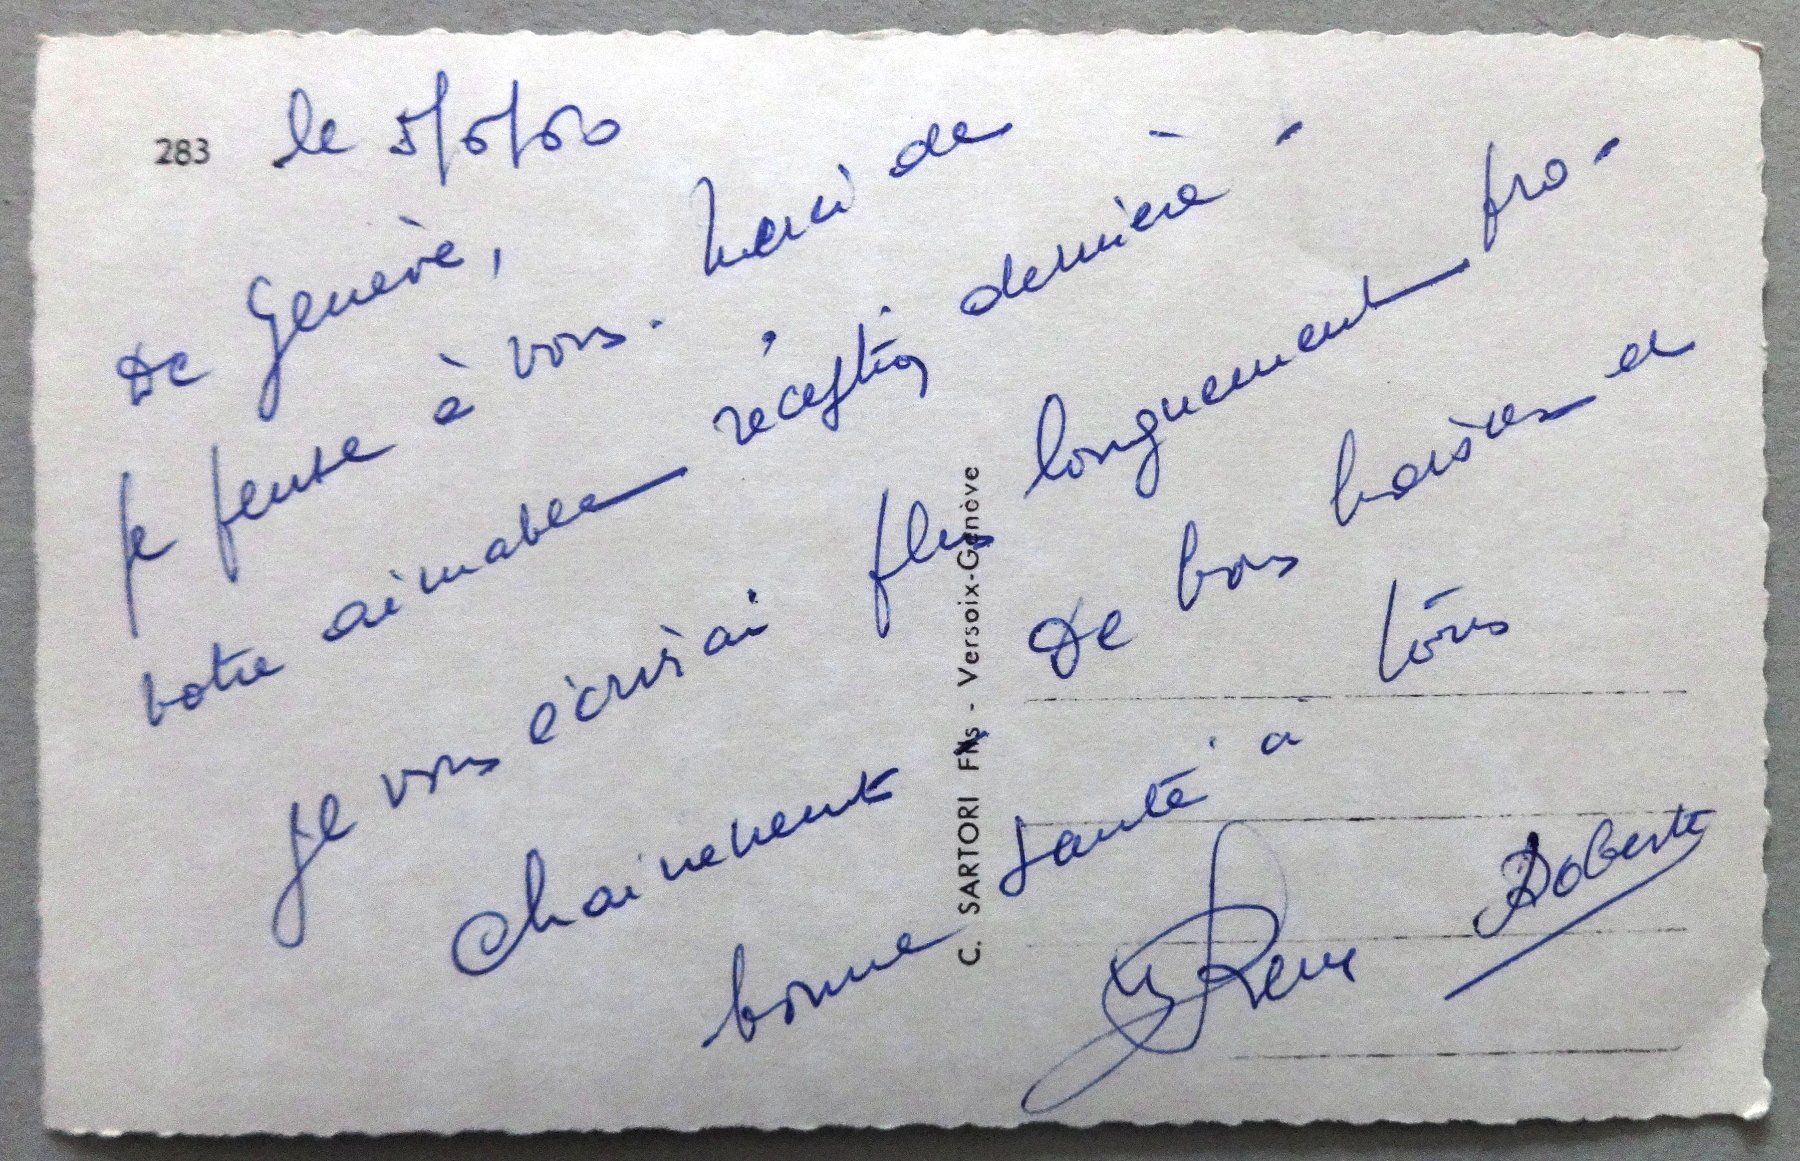 283
le 5/5/60
De Genève,
Je pense à vous. Merci de
votre aimable réception dernière.
Je vous écrirai plus longuement pro-
chainement. De bons baisers et
bonne santé à tous
René Roberte
C. SARTORI Fils - Versoix-Genève